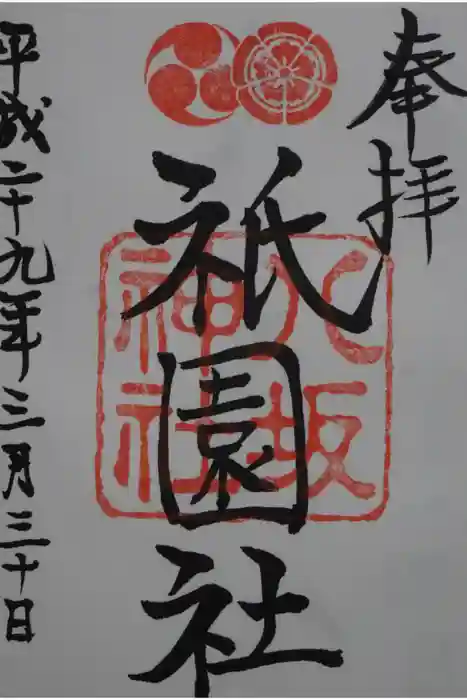 奉拝
八坂
神社
祇園社
平成二十九年三月三十日